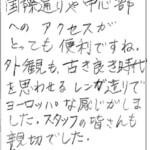 国際通りや中心部
へのアクセスが
とっても便利ですね。
外観も、古き良き時代
を思わせるレンガ造りで
ヨーロッパな感じがしま
した。スタッフの皆さんも
親切でした。